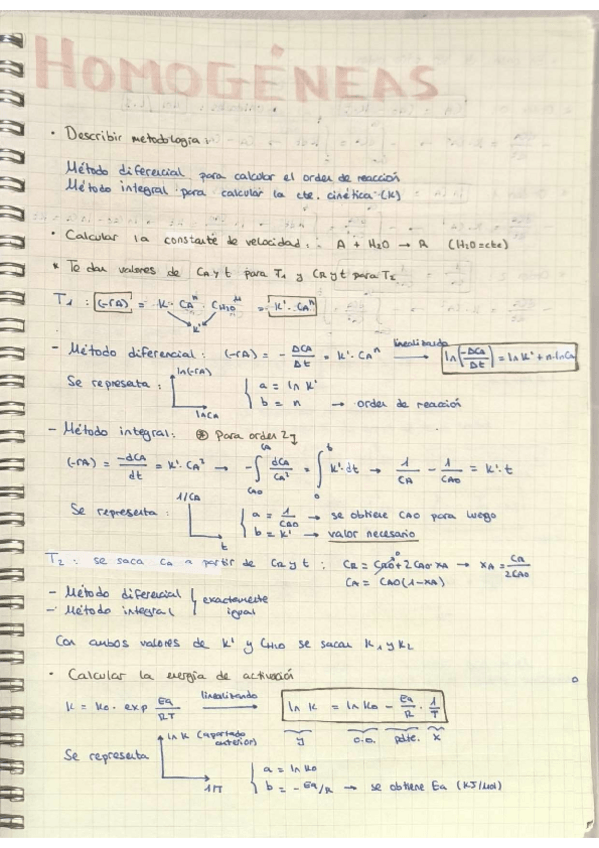 HOMOGÉNEAS
• Describir metodología:
Método diferencial para calcular el orden de reacción
Método integral para calcular la cte. cinética (K)
• Calcular la constante de velocidad: A + H2O → R (H2O = cte)
* Te dan valores de CA y t para T1 y CR y t para T2
T1: (-rA) = K · CA^n · CH2O^m = K' · CA^n
K'
- Método diferencial: (-rA) = - ΔCA/Δt = K' · CA^n linealizando → ln(-ΔCA/Δt) = ln K' + n · ln CA
Se representa: ln(-rA) ln CA { a = ln K'
b = n → orden de reacción
- Método integral: ⊛ Para orden 2
(-rA) = -dCA/dt = K' · CA^2 → -∫_{CA0}^{CA} dCA/CA^2 = ∫_0^t K' · dt → 1/CA - 1/CA0 = K' · t
Se representa: 1/CA t { a = 1/CA0 → se obtiene CA0 para luego
b = K' → valor necesario
T2: se saca CA a partir de CR y t: CR = CR0 + 2CA0 · XA → XA = CR/2CA0
CA = CA0 (1 - XA)
- Método diferencial
- Método integral } exactamente igual
Con ambos valores de K' y CH2O se sacan K1 y K2
• Calcular la energía de activación
K = K0 · exp Ea/RT linealizando → ln K = ln K0 - Ea/R · 1/T
y o.o. pdte. x
Se representa ln K (apartado anterior) 1/T { a = ln K0
b = - Ea/R → se obtiene Ea (KJ/mol)